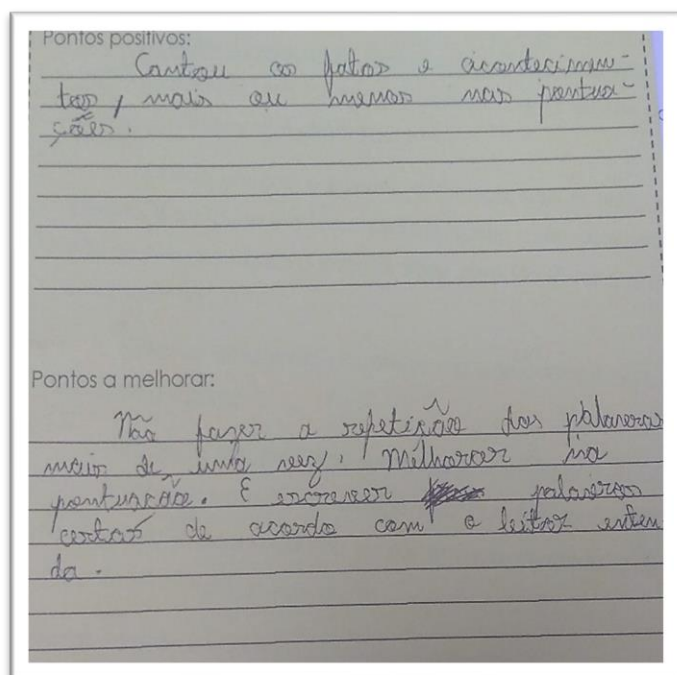 Pontos positivos:
Contou os fatos e acontecimen-
tos, mais ou menos nas pontua-
ções.
Pontos a melhorar:
Não fazer a repetixão das palavras
mais de uma vez. Milhorar na
pontuacão. E escrever palavras
certas de acordo com o leitor enten
da.